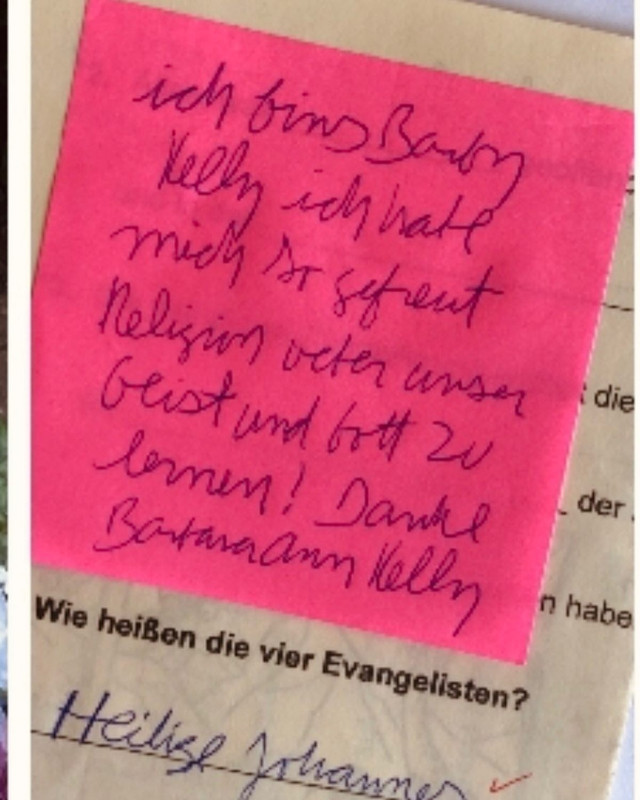 ich bins Barby
Kelly ich hate
mich so gefreut
Religion veter unser
Geist und Gott zu
lernen! Danke
Barbara Ann Kelly
die
der
n habe
Wie heißen die vier Evangelisten?
Heilige Johannes